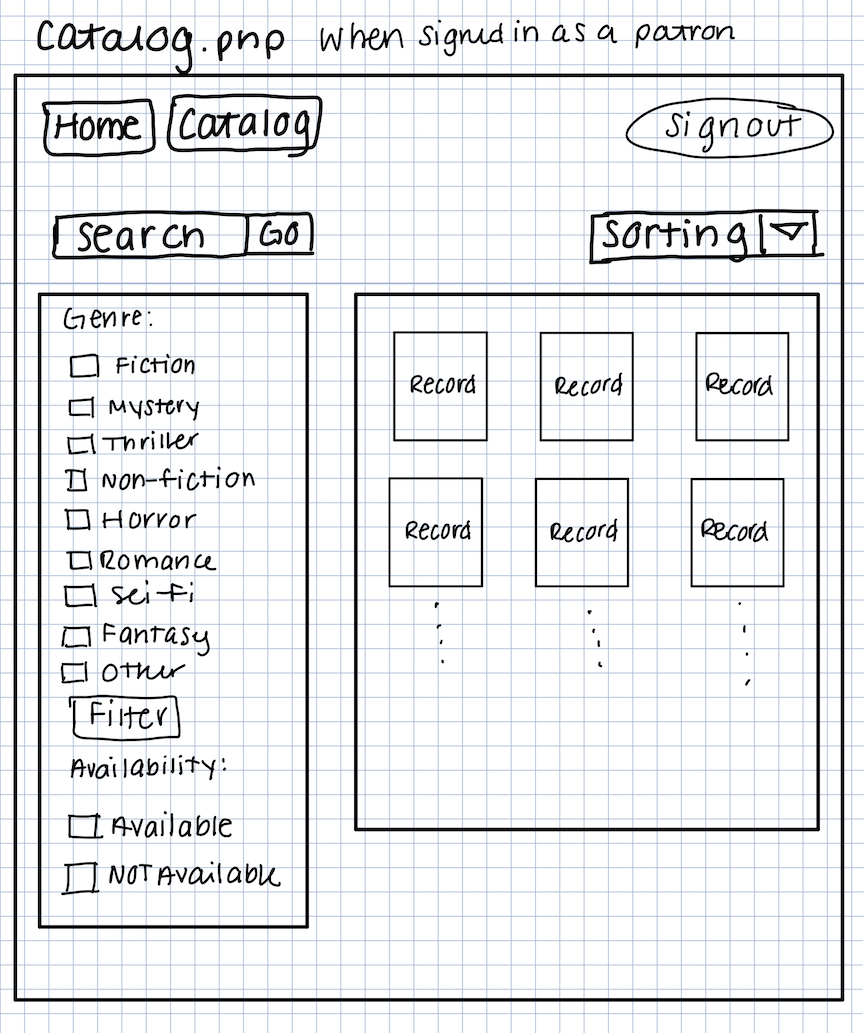 Catalog.php when signed in as a patron
Home Catalog signout
search GO sorting
Genre:
Fiction
Mystery
Thriller
Non-fiction
Horror
Romance
Sci-Fi
Fantasy
Other
Filter
Availability:
Available
NOT Available
Record Record Record
Record Record Record